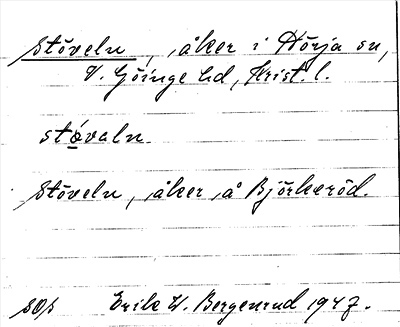 Stöveln, åker i Hörja sn,
V. Göinge hd, Krist. l.
stövaln.
Stöveln, åker å Björkeröd.
Erik W. Bergenrud 1947.